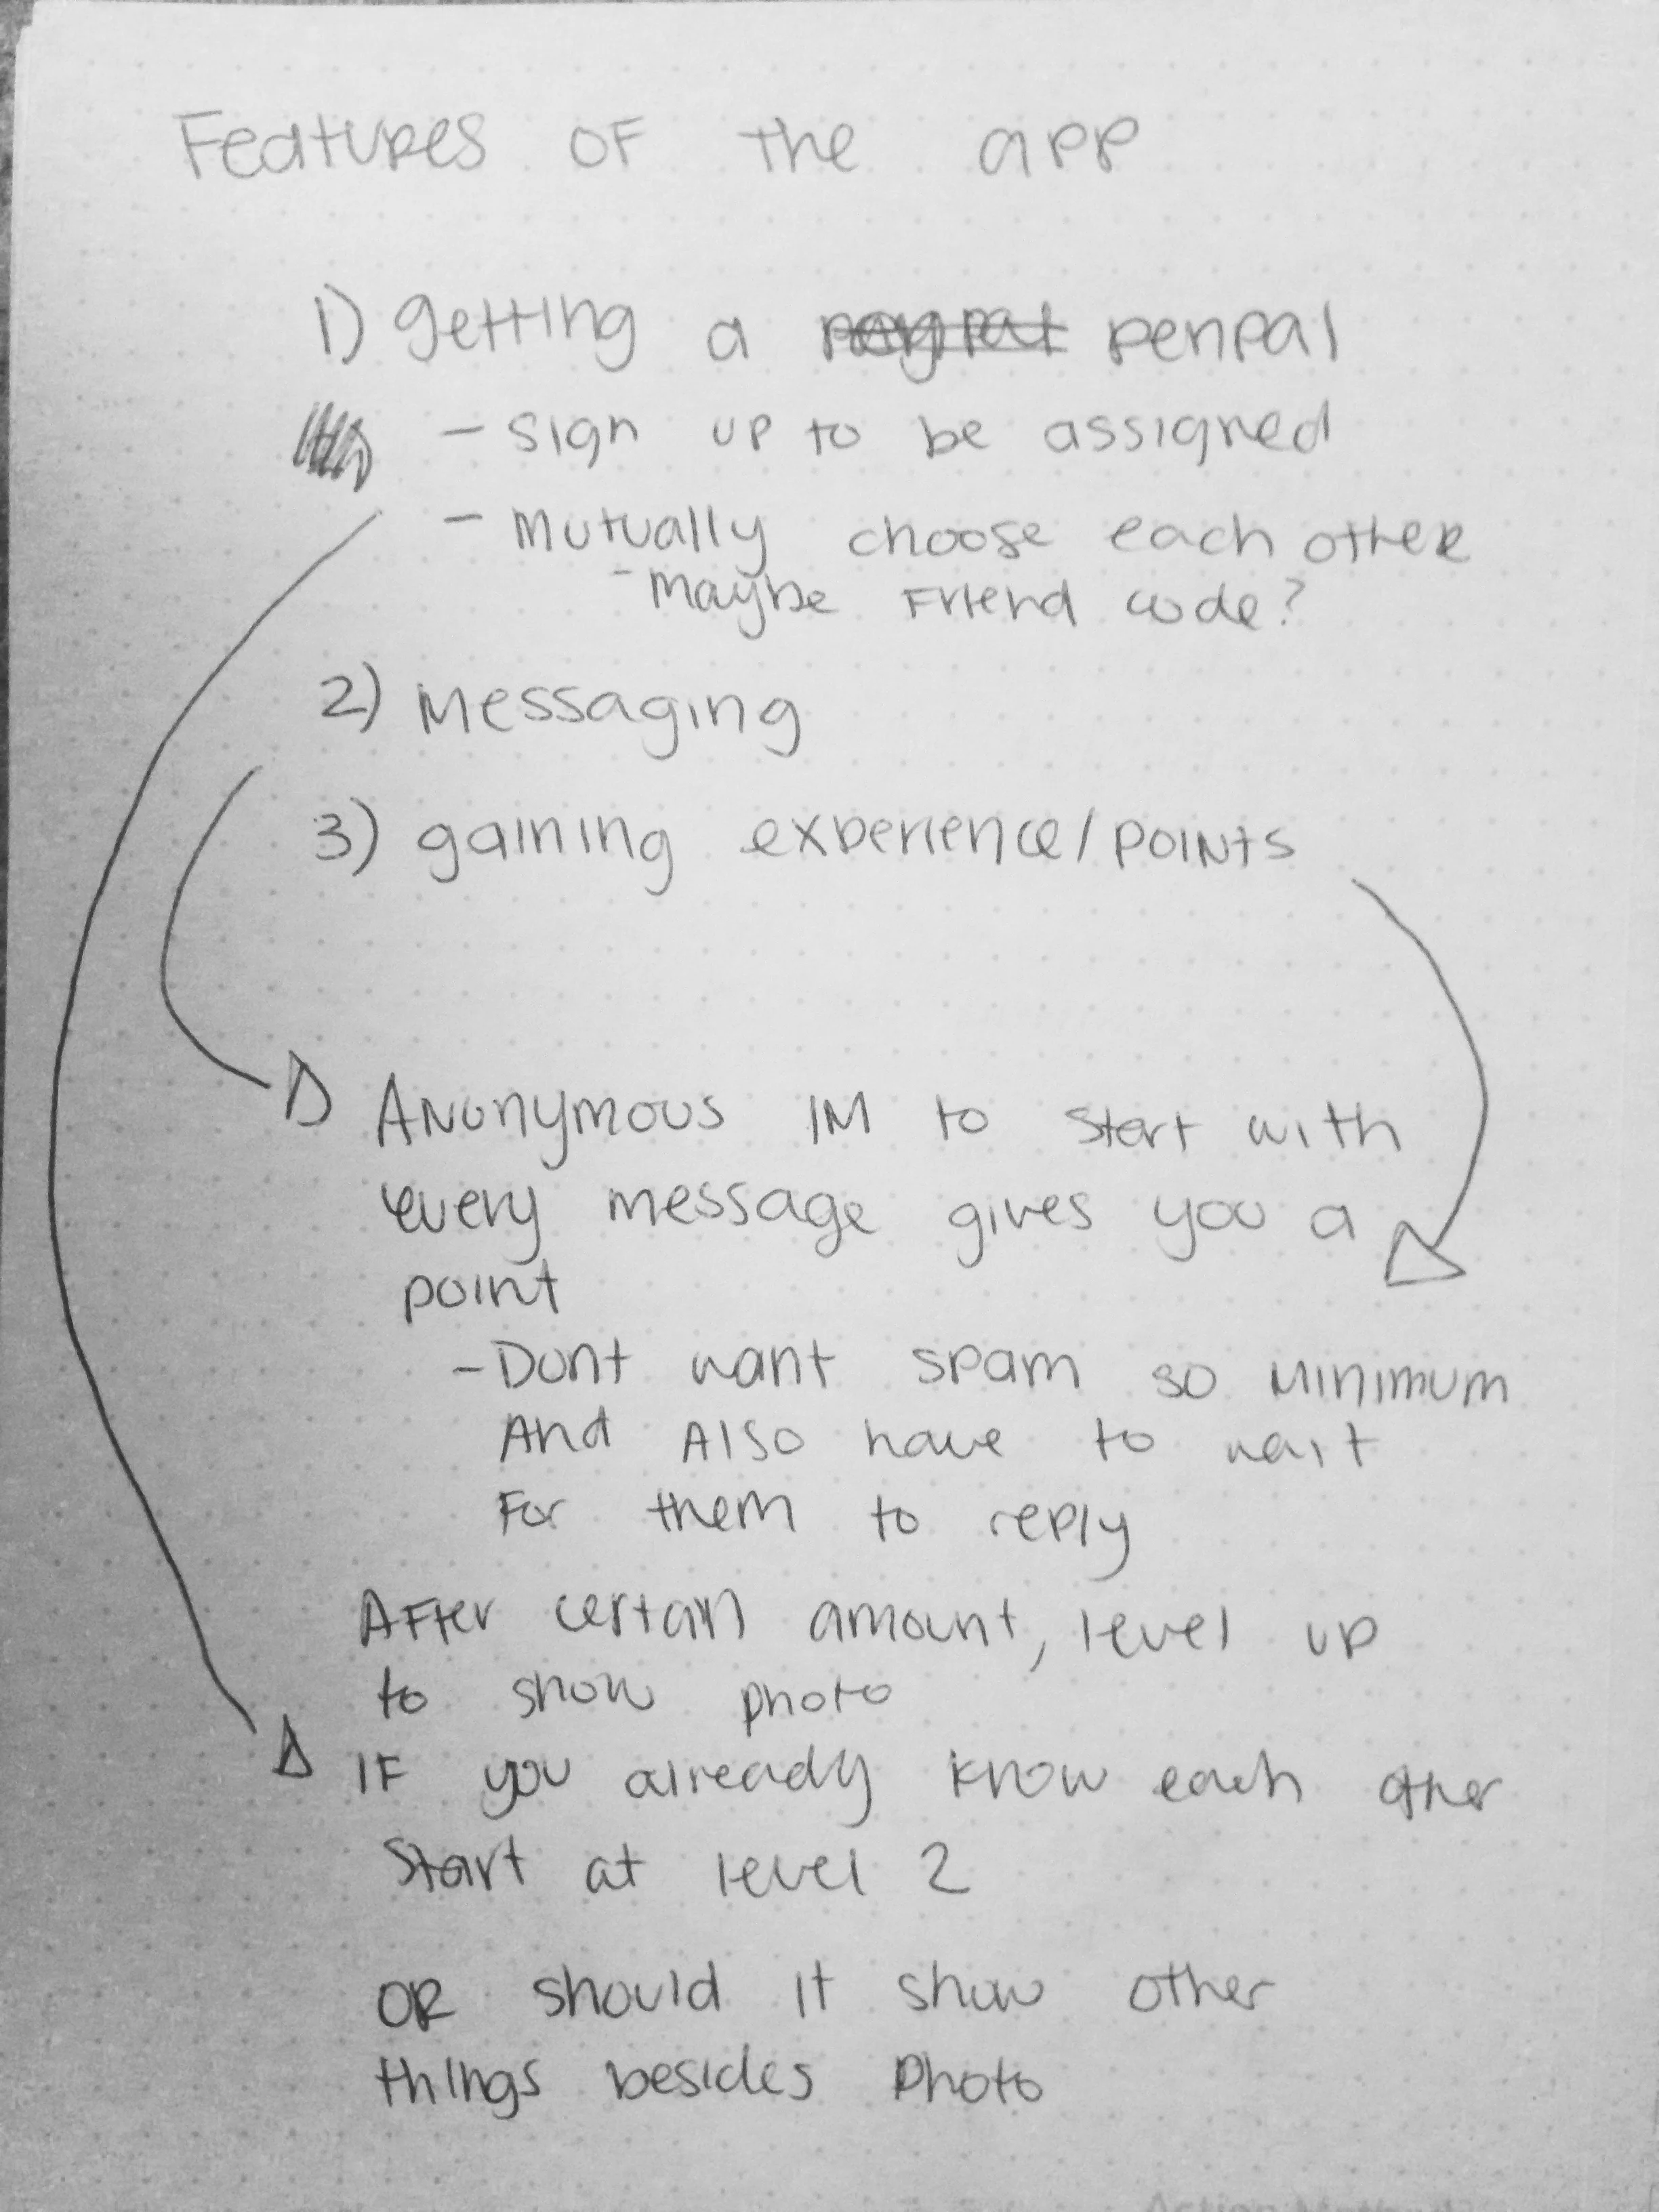 Features of the app
1) getting a penpal
- sign up to be assigned
- Mutually choose each other
- Maybe Friend code?
2) Messaging
3) gaining experience/points
Anonymous IM to start with
every message gives you a
point
- Dont want spam so minimum
And Also have to wait
For them to reply
After certain amount, level up
to show photo
IF you already know each other
Start at level 2
OR should it show other
things besides Photo